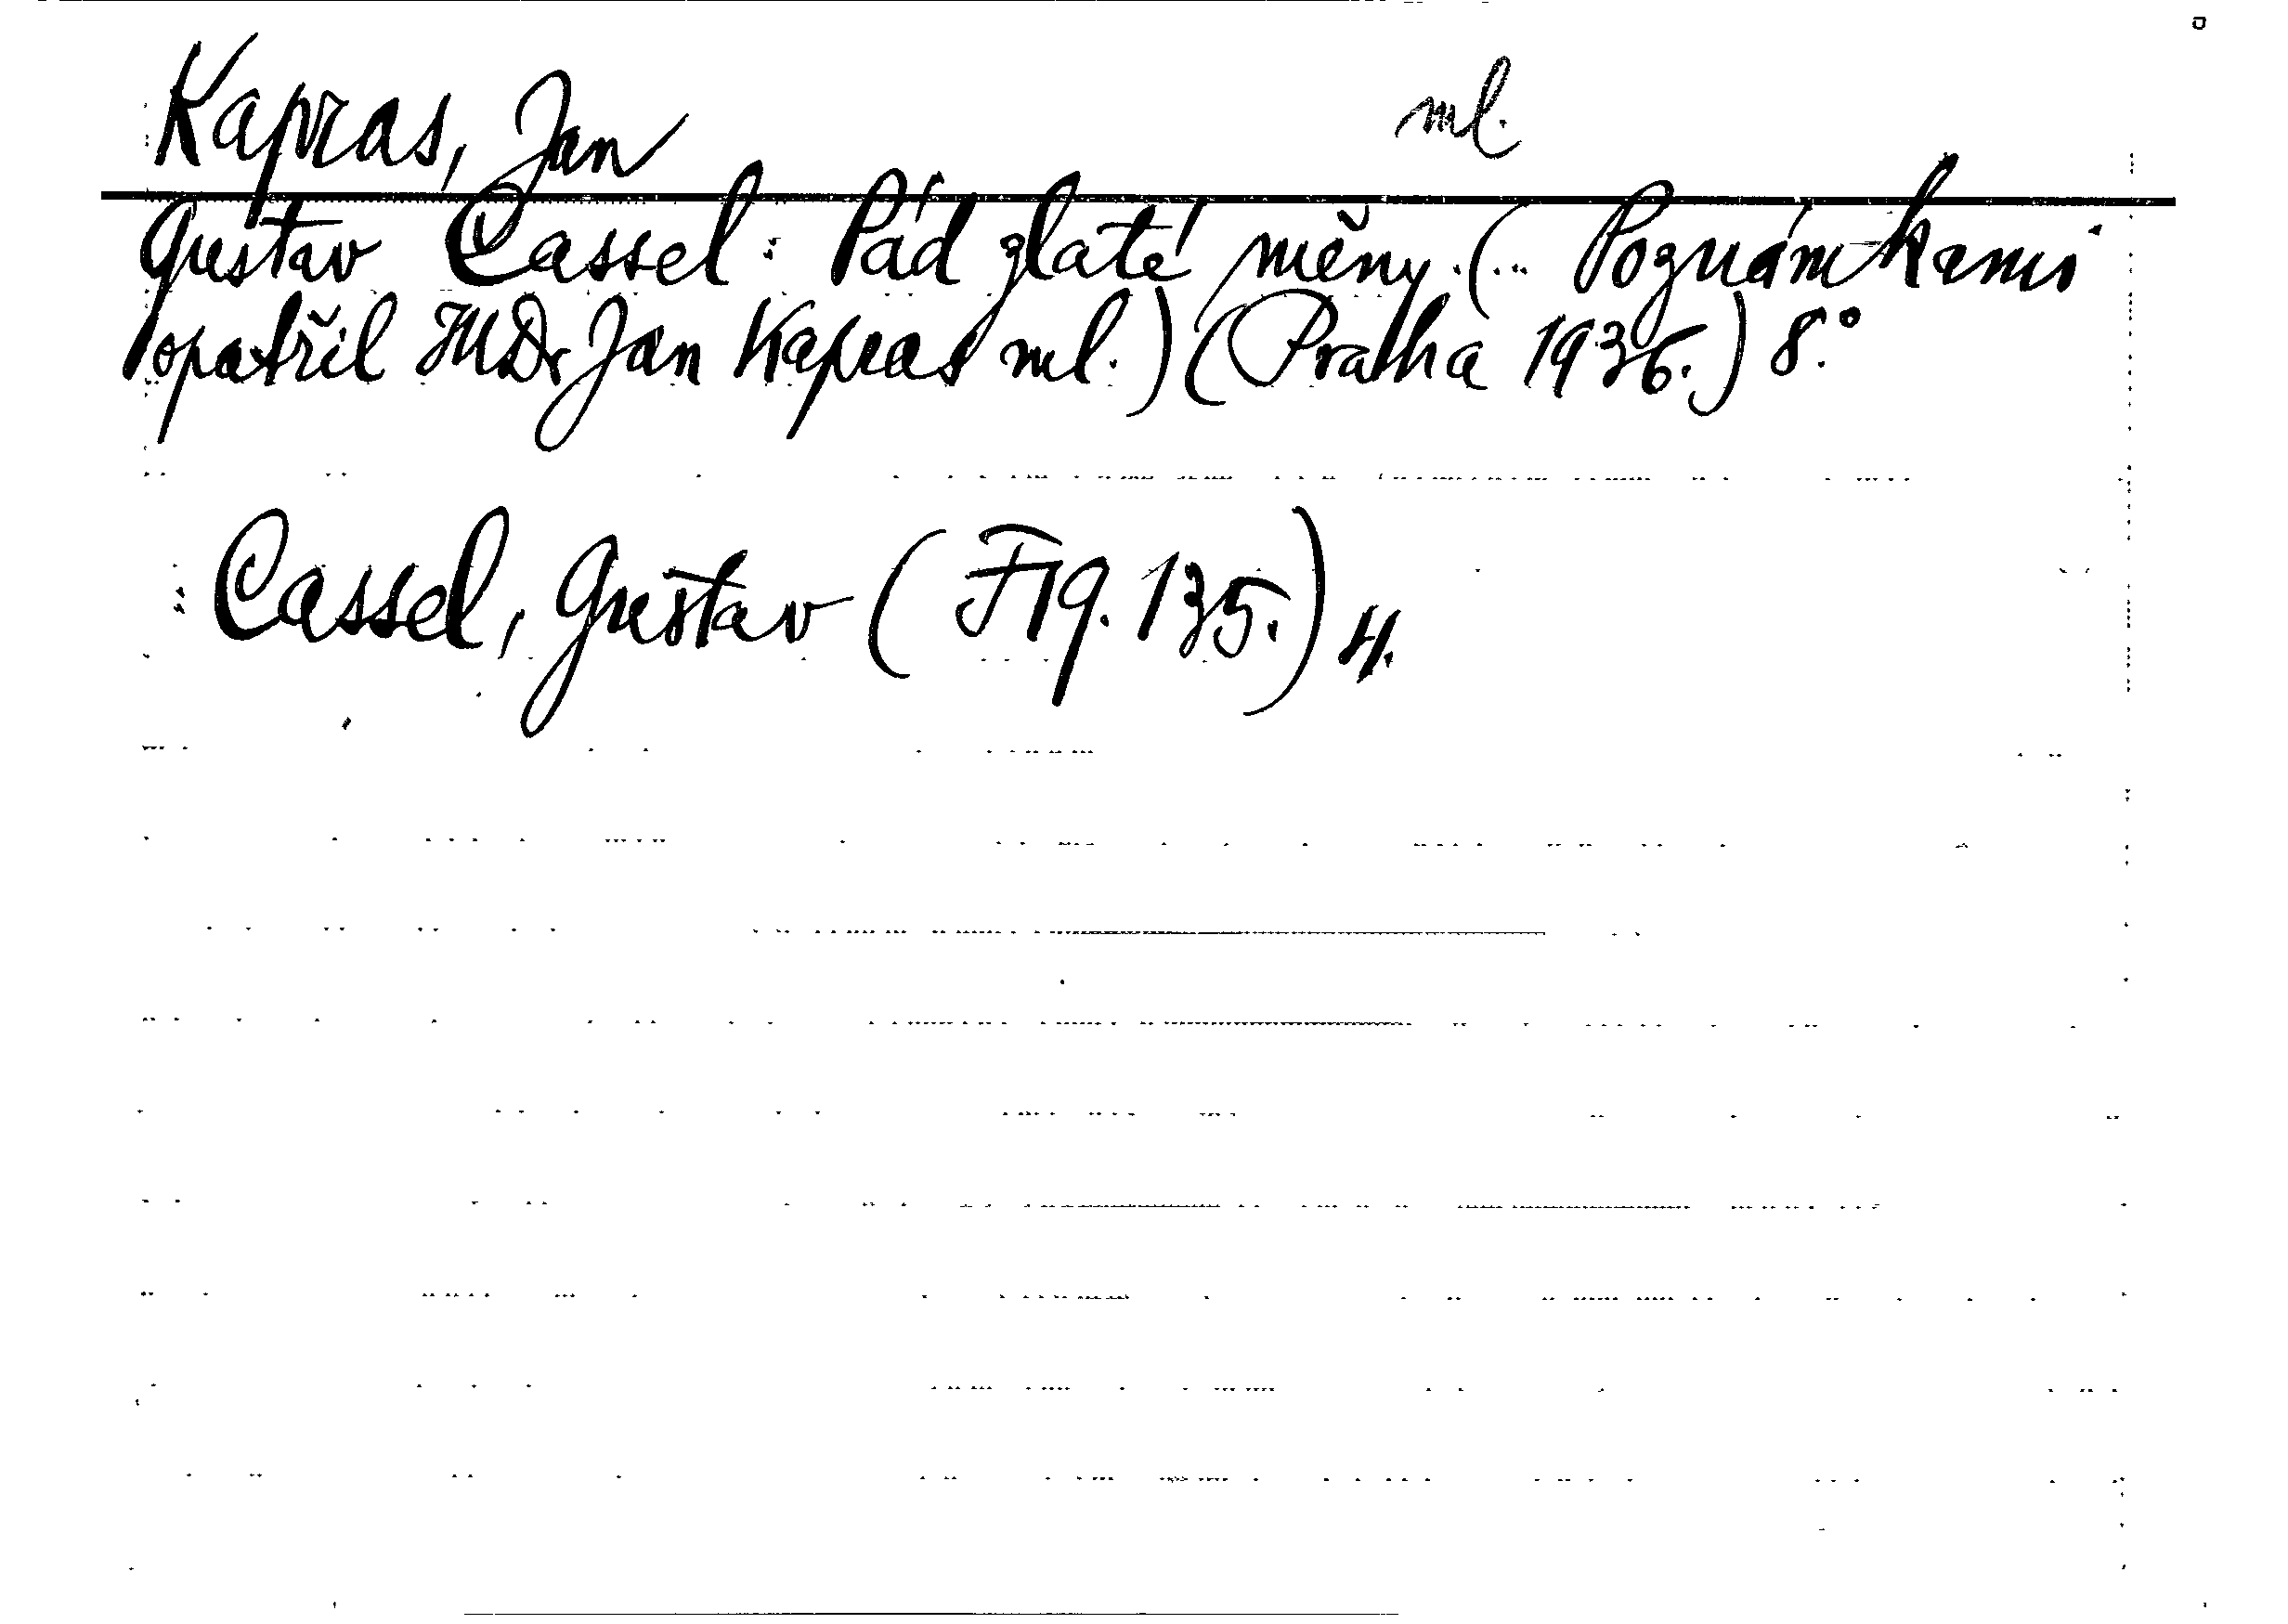 Kapras, Jan ml.
Gustav Cassel: Pád zlaté měny. (... Poznámkami
opatřil JUDr Jan Kapras ml.) (Praha 1936.) 8.°
: Cassel, Gustav (F 19. 135.) 4.